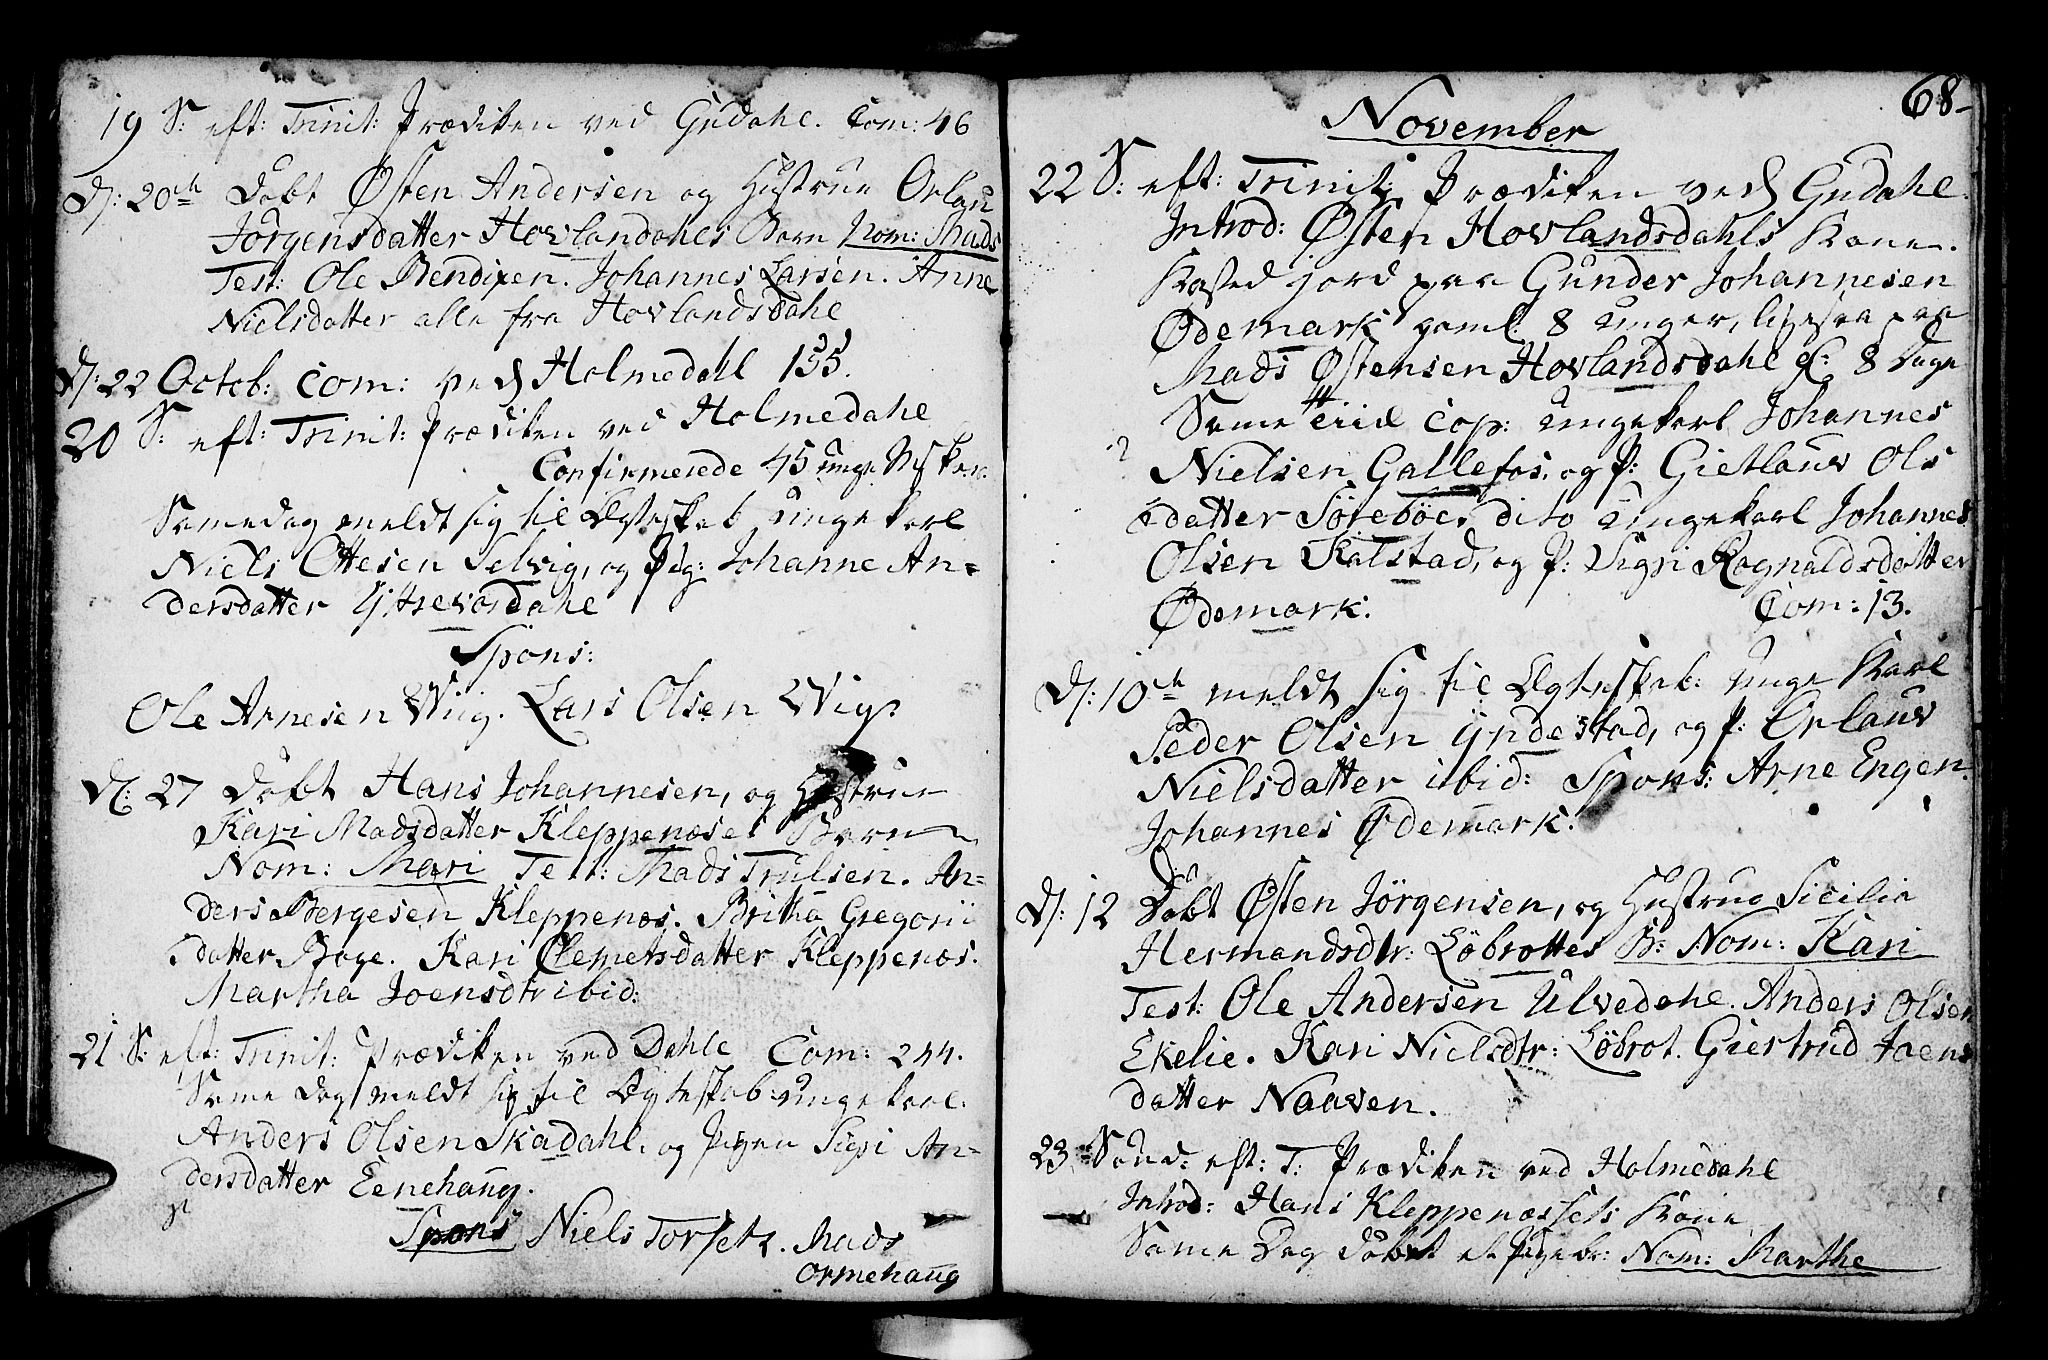 19 S: eft: Trinit: Prædiken ved Gudahl. Com: 46
D: 20de Döbt Østen Andersen og Hustrue Orlau
Jörgensdatter Hovlandahls Barn Nom: Mads
Test: Ole Bendixen. Johannes Larsen. Anne
Nielsdatter alle fra Hovlandsdahl
D: 22 Octob: Com: ved Holmedahl 155.
20 S: eft: Trinit: Prædiken ved Holmedahl
Confirmerede 45 unge Msker.
Samedag meldt sig til Ægteskab ungekarl
Niels Ottesen Selvig, og Pig: Johanne An=
dersdatter Yttrevosdahl
Spons:
Ole Arnesen Wiig. Lars Olsen Wiig.
D: 27 Döbt Hans Johannesen, og Hustrue
Kari Madsdatter Kleppenæses Barn
Nom: Mari Test: Mads Trulsen. An=
ders Bergesen Kleppenæs. Britha Gregorii
datter Boge. Kari Clemetsdatter Kleppenæs.
Martha Joensdtr ibid:
21. S: eft: Trinit: Prædiken ved Dahle Com: 244.
Same Dag meldt sig til Ægteskab ungekarl
Anders Olsen Skadahl, og Pigen Sigri An=
dersdatter Eenehaug.
Spons Niels Torsetz. Mads
Ormehaug
68-
November
22 S: eft: Trinit: Prædiken ved Gudahl.
Introd: Østen Hovlandsdahls Kone.
Kasted jord paa Gunder Johannesen
Ødemark gaml: 8 uuger, ligesaa paa
Mads Østensen Hovlandsdahl gl: 8 Dage
Same tiid Cop: ungekarl Johannes
Nielsen Gallefos, og P: Gietlauv Ols
datter Söreböe, dito ungekarl Johannes
Olsen Kalstad, og P: Sigri Rognaldsdatter
Ødemark. Com: 13.
D: 10de meldt sig til Ægteskab: unge Karl
Peder Olsen Yndestad, og P: Orlauv
Nielsdatter ibid: Spons: Arne Engen.
Johannes Ødemark.
D: 12 Döbt Østen Jörgensen, og Hustrue Sicilia
Hermandsdtr: Löbrottes B: Nom: Kari
Test: Ole Andersen Ulvedahl. Anders Olsen
Ekelie. Kari Nielsdtr: Löbrot. Giertrud Joens
datter Naaven.
23 Sönd: eft: T: Prædiken ved Holmedahl
Introd: Hans Kleppenæssets Kone
Same Dag Döbt et Pigeb: Nom: Marthe